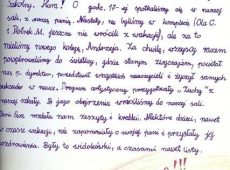 Szkolny. Hura! O godz. 17-ej spotkaliśmy się w naszej
sali, z naszą panią. Niestety, nie byliśmy w komplecie (Ola C.
i Rolnik M. jeszcze nie wrócili z wakacji), ale za to
mieliśmy nowego kolegę, Andrzeja. Za chwilę, wszyscy razem
powędrowaliśmy do świetlicy, gdzie starym zwyczajem, powitał
nas p. dyrektor, przedstawił wszystkich nauczycieli i życzył samych
sukcesów w nauce. Program artystyczny przygotowały „Zuchy" z
naszej szkoły. Po jego obejrzeniu wróciliśmy do naszej sali.
Pani Iwa rozdała nam zeszyty i kredki. Niektóre dzieci, nawet
w czasie wakacji, nie zapomniały o swojej pani i przysłały jej
pozdrowienia. Były to widokówki, a czasami nawet listy.
!!!